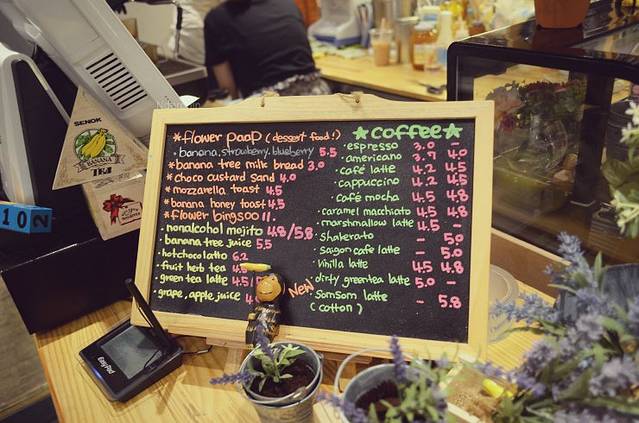 SENOK
BANANA
TREE
102
*flower paap (dessert food!)
banana, strawberry, blueberry 5.5
*banana tree milk bread 3.0
*choco custard sand 4.0
*mozzarella toast 4.5
*banana honey toast 4.5
*flower bingsoo 11.
nonalcohol mojito 4.8/5.8
banana tree juice 5.5
hotchocolatto 6.2
fruit herb tea 4.5
green tea latte 4.5
grape, apple juice 4
New
*coffee*
espresso 3.0 -
americano 3.7 4.0
café latte 4.2 4.5
cappuccino 4.2 4.5
café mocha 4.5 4.8
caramel macchiato 4.5 4.8
marshmallow latte 4.5 -
Shakerato - 5.0
Saigon cafe latte - 5.0
Vinilla latte 4.5 4.8
dirty greentea latte 5.0 -
somsom latte - 5.8
(cotton)